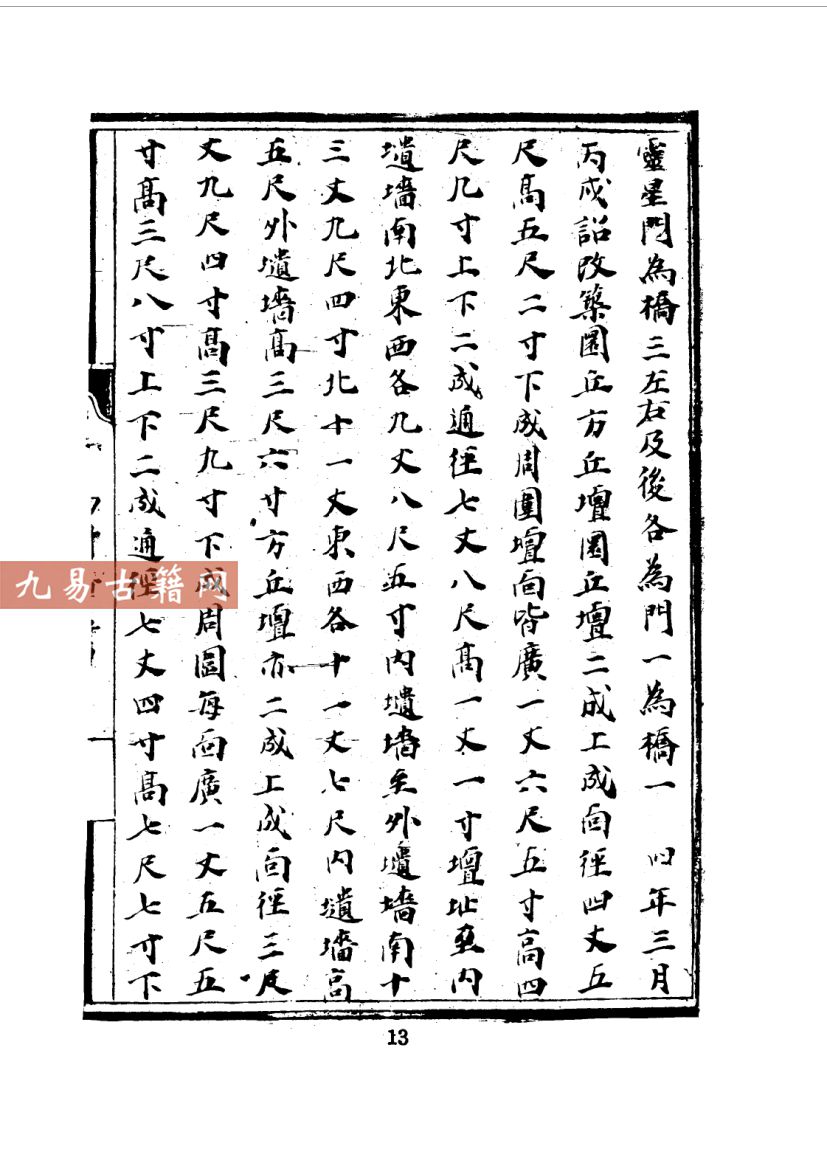 靈星門為橋三左右及後各為門一為橋一　四年三月
丙戌詔改築圜丘方丘壇圜丘壇二成上成面徑四丈五
尺高五尺二寸下成周圍壇面皆廣一丈六尺五寸高四
尺九寸上下二成通徑七丈八尺高一丈一寸壇址至內
壝墻南北東西各九丈八尺五寸內壝墻至外壝墻南十
三丈九尺四寸北十一丈東西各十一丈七尺內壝墻高
五尺外壝墻高三尺六寸方丘壇亦二成上成面徑三
丈九尺四寸高三尺九寸下成周圍每面廣一丈五尺五
寸高三尺八寸上下二成通徑七丈四寸高七尺七寸下
九易古籍网
13